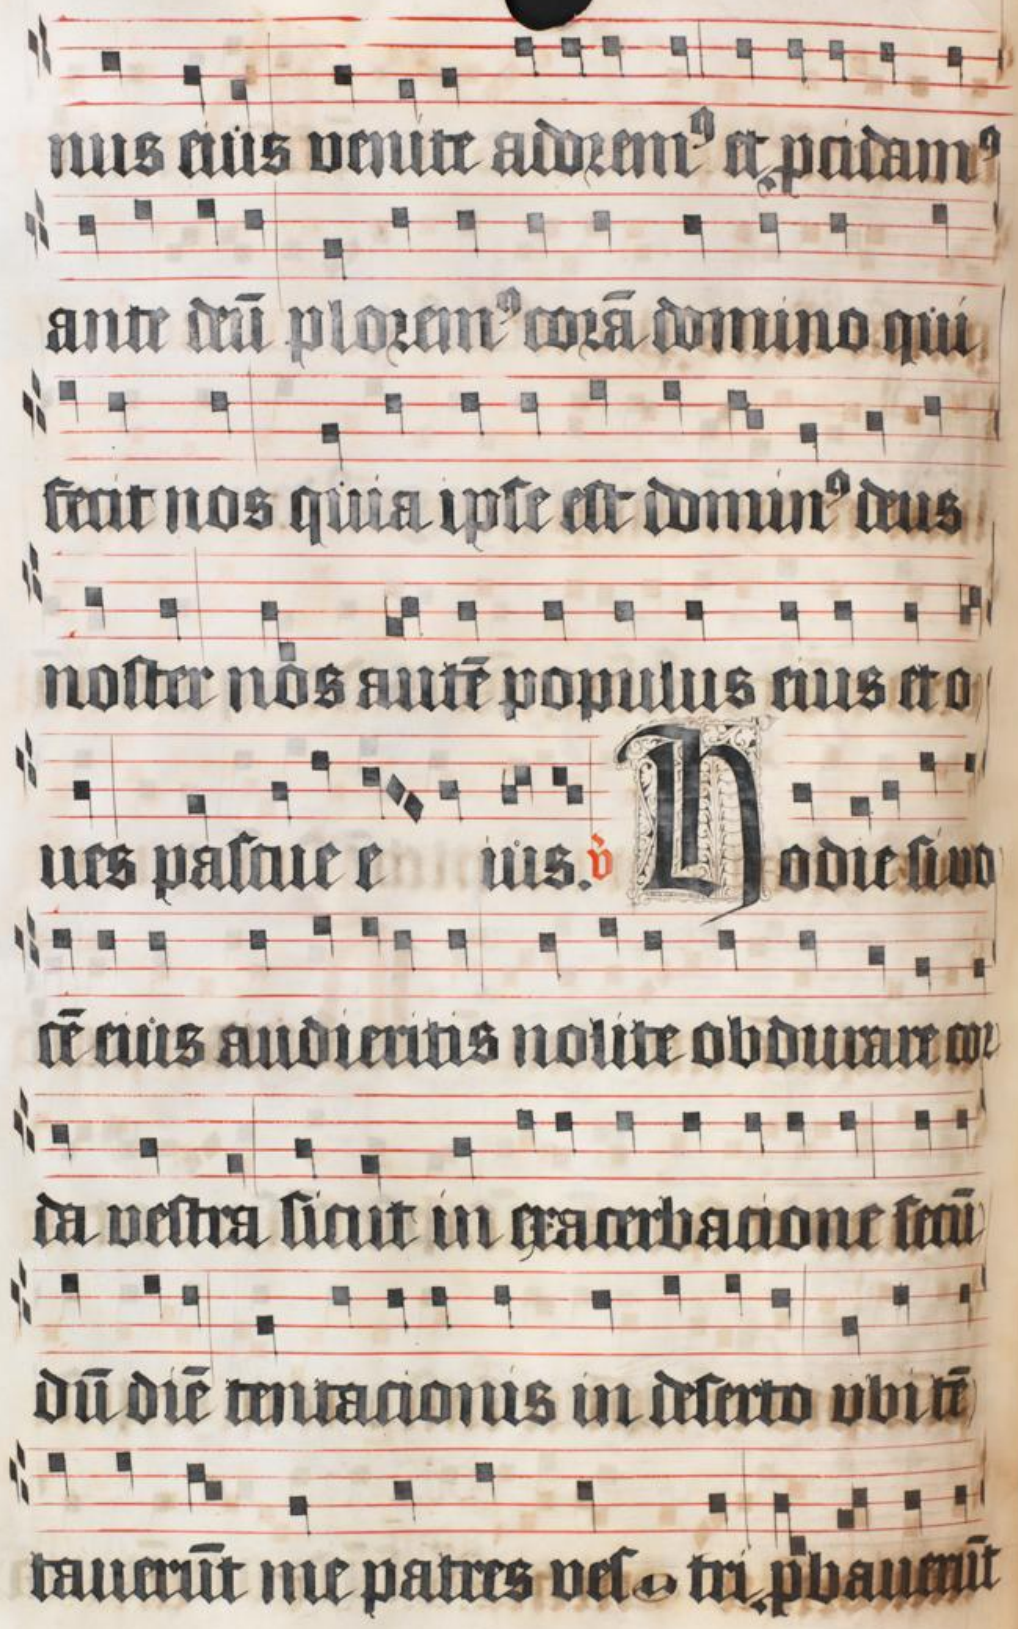 nus eius venite adorem⁹ et ꝓcidam⁹
ante deū plorem⁹ corā domino qui
fecit nos quia ipse est domin⁹ deus
noster nos autē populus eius et o
ues pascue e ius. v̄ Hodie si vo
cē eius audieritis nolite obdurare cor
da vestra sicut in exacerbacione secū
dū diē temtacionis in deserto vbi tē
tauerūt me patres ves tri ꝓbauerūt